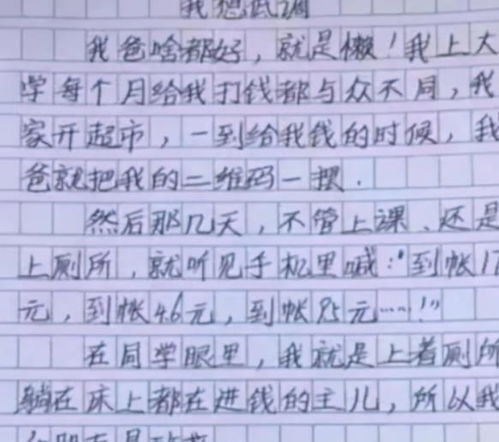 我想低调
我爸啥都好，就是懒！我上大
学每个月给我打钱都与众不同，我
家开超市，一到给我钱的时候，我
爸就把我的二维码一摆．
然后那几天，不管上课、还是
上厕所，就听见手机里喊："到帐17
元，到帐4.6元，到帐95元……！"
在同学眼里，我就是上着厕所
躺在床上都在进钱的主儿，所以我